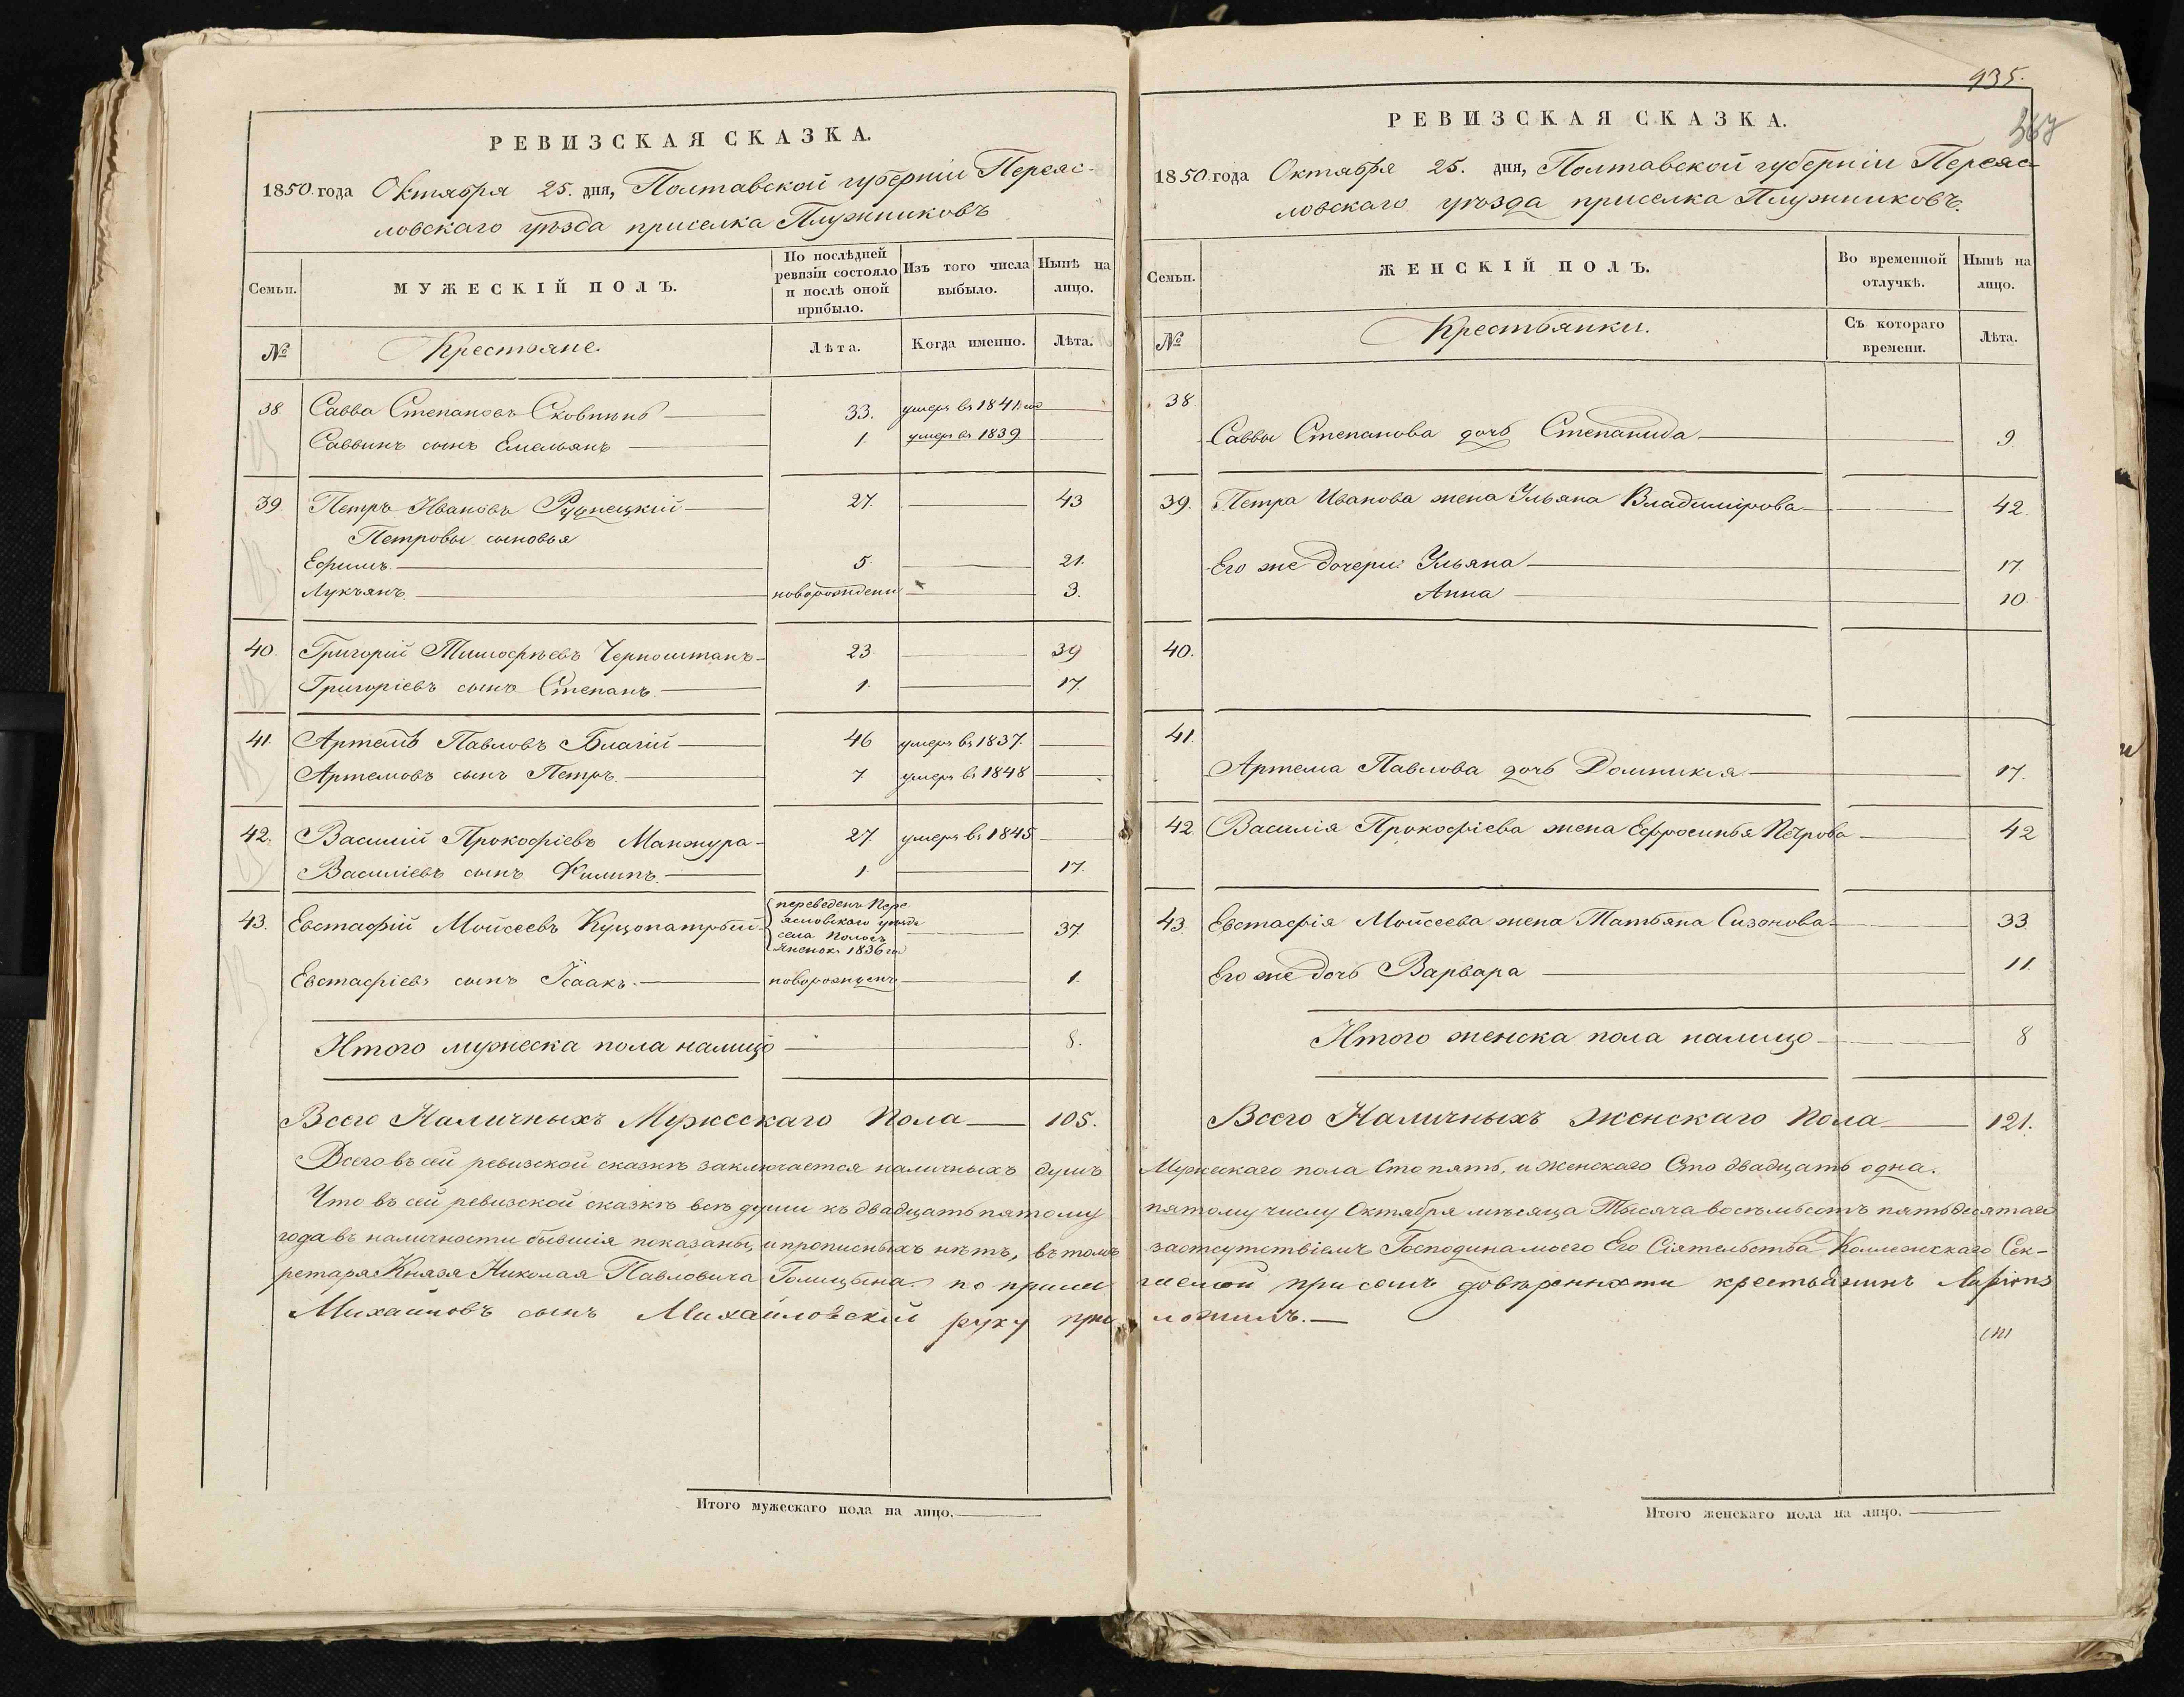 РЕВИЗСКАЯ СКАЗКА.
1850. года Октября 25. дня, Полтавской губерніи Переяс-
ловскаго уѣзда приселка Плужниковъ
Семьи.
МУЖЕСКІЙ ПОЛЪ.
По послѣдней ревизіи состояло и послѣ оной прибыло.
Изъ того числа выбыло.
Нынѣ на лицо.
№
Крестьяне.
Лѣта.
Когда именно.
Лѣта.
38 Савва Степановъ 33. умеръ въ 1841
Саввинъ сынъ Емельянъ 1. умеръ въ 1839
39. Петръ Ивановъ Рудецкій 27. 43
Петровы сыновья
Ефимъ. 5. 21.
Лукъянъ. новорожденн 3.
40. Григорій Тимофѣевъ Черноштанъ 23. 39
Григоріевъ сынъ Степанъ. 1. 17.
41. Артемъ Павловъ Благій 46 умеръ въ 1837.
Артемовъ сынъ Петръ. 7 умеръ въ 1848
42. Василій Прокофіевъ Манжура 27. умеръ въ 1845
Василіевъ сынъ Филипъ. 1. 17.
43. Евстафій Мойсеевъ 37
переведенъ Пере
ясловскаго уѣзда
села
1836 го
Евстафіевъ сынъ Ісаакъ. новорожденъ 1.
Итого мужеска пола налицо 8.
Всего Наличныхъ Мужескаго Пола 105.
Всего въ сей ревизской сказкѣ заключается наличныхъ душъ
Что въ сей ревизской сказкѣ всѣ души къ двадцать пятому
года въ наличности бывшія показаны, и прописныхъ нѣтъ, въ томъ
ретаря Князя Николая Павловича Голицына. по прила
Михайловъ сынъ Михайловскій руку при
Итого мужескаго пола на лицо.
935.
367
РЕВИЗСКАЯ СКАЗКА.
1850. года Октября 25. дня, Полтавской губерніи Переяс-
ловскаго уѣзда приселка Плужниковъ.
Семьи.
ЖЕНСКІЙ ПОЛЪ.
Во временной отлучкѣ.
Нынѣ на лицо.
№
Крестьянки.
Съ котораго времени.
Лѣта.
38
Саввы Степанова дочь Степанида 9.
39. Петра Иванова жена Ульяна Владимірова 42.
Его же дочери Ульяна 17.
Анна 10
40.
41.
Артема Павлова дочь Домникія 17.
42. Василія Прокофіева жена Ефросинья Петрова 42
43. Евстафія Мойсеева жена Татьяна Сизонова 33.
Его же дочь Варвара 11.
Итого женска пола налицо 8
Всего Наличныхъ Женскаго Пола 121.
Мужескаго пола Сто пять, и женскаго Сто двадцать одна.
пятому числу Октября мѣсяца Тысяча восемьсотъ пятьдесятаго
заотсутствіемъ Господина моего Его Сіятельства Коллежскаго Сек-
гаемой при семъ довѣренности крестьянинъ
ложилъ.
Итого женскаго пола на лицо.